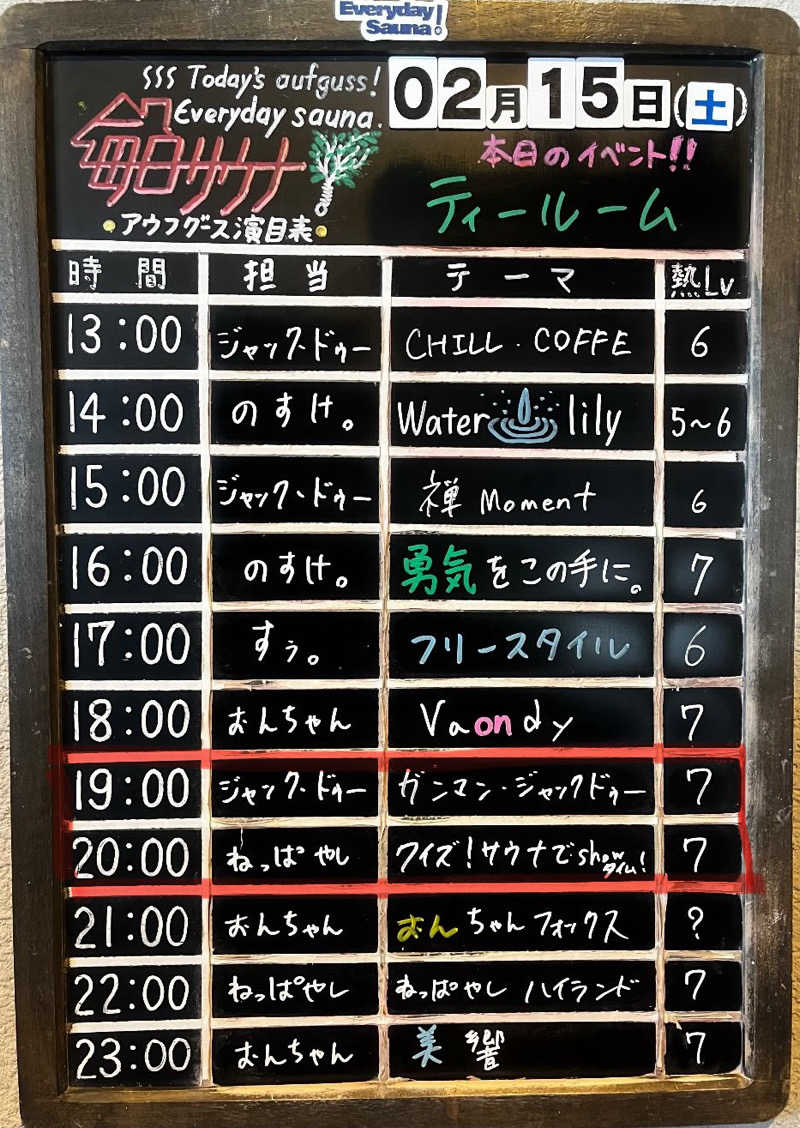 Everyday
Sauna!
SSS Today's aufguss!
Everyday sauna.
毎日サウナ
•アウフグース演目表•
02月15日(土)
本日のイベント!!
ティールーム
時間 担当 テーマ 熱Lv
13:00 ジャック・ドゥー CHILL・COFFE 6
14:00 のすけ。 Water lily 5〜6
15:00 ジャック・ドゥー 禅 Moment 6
16:00 のすけ。 勇気をこの手に。 7
17:00 すぅ。 フリースタイル 6
18:00 おんちゃん Vaondy 7
19:00 ジャック・ドゥー ガンマン・ジャックドゥー 7
20:00 ねっぱやし クイズ!サウナでshowタイム! 7
21:00 おんちゃん おんちゃんフォックス ?
22:00 ねっぱやし ねっぱやしハイランド 7
23:00 おんちゃん 美響 7